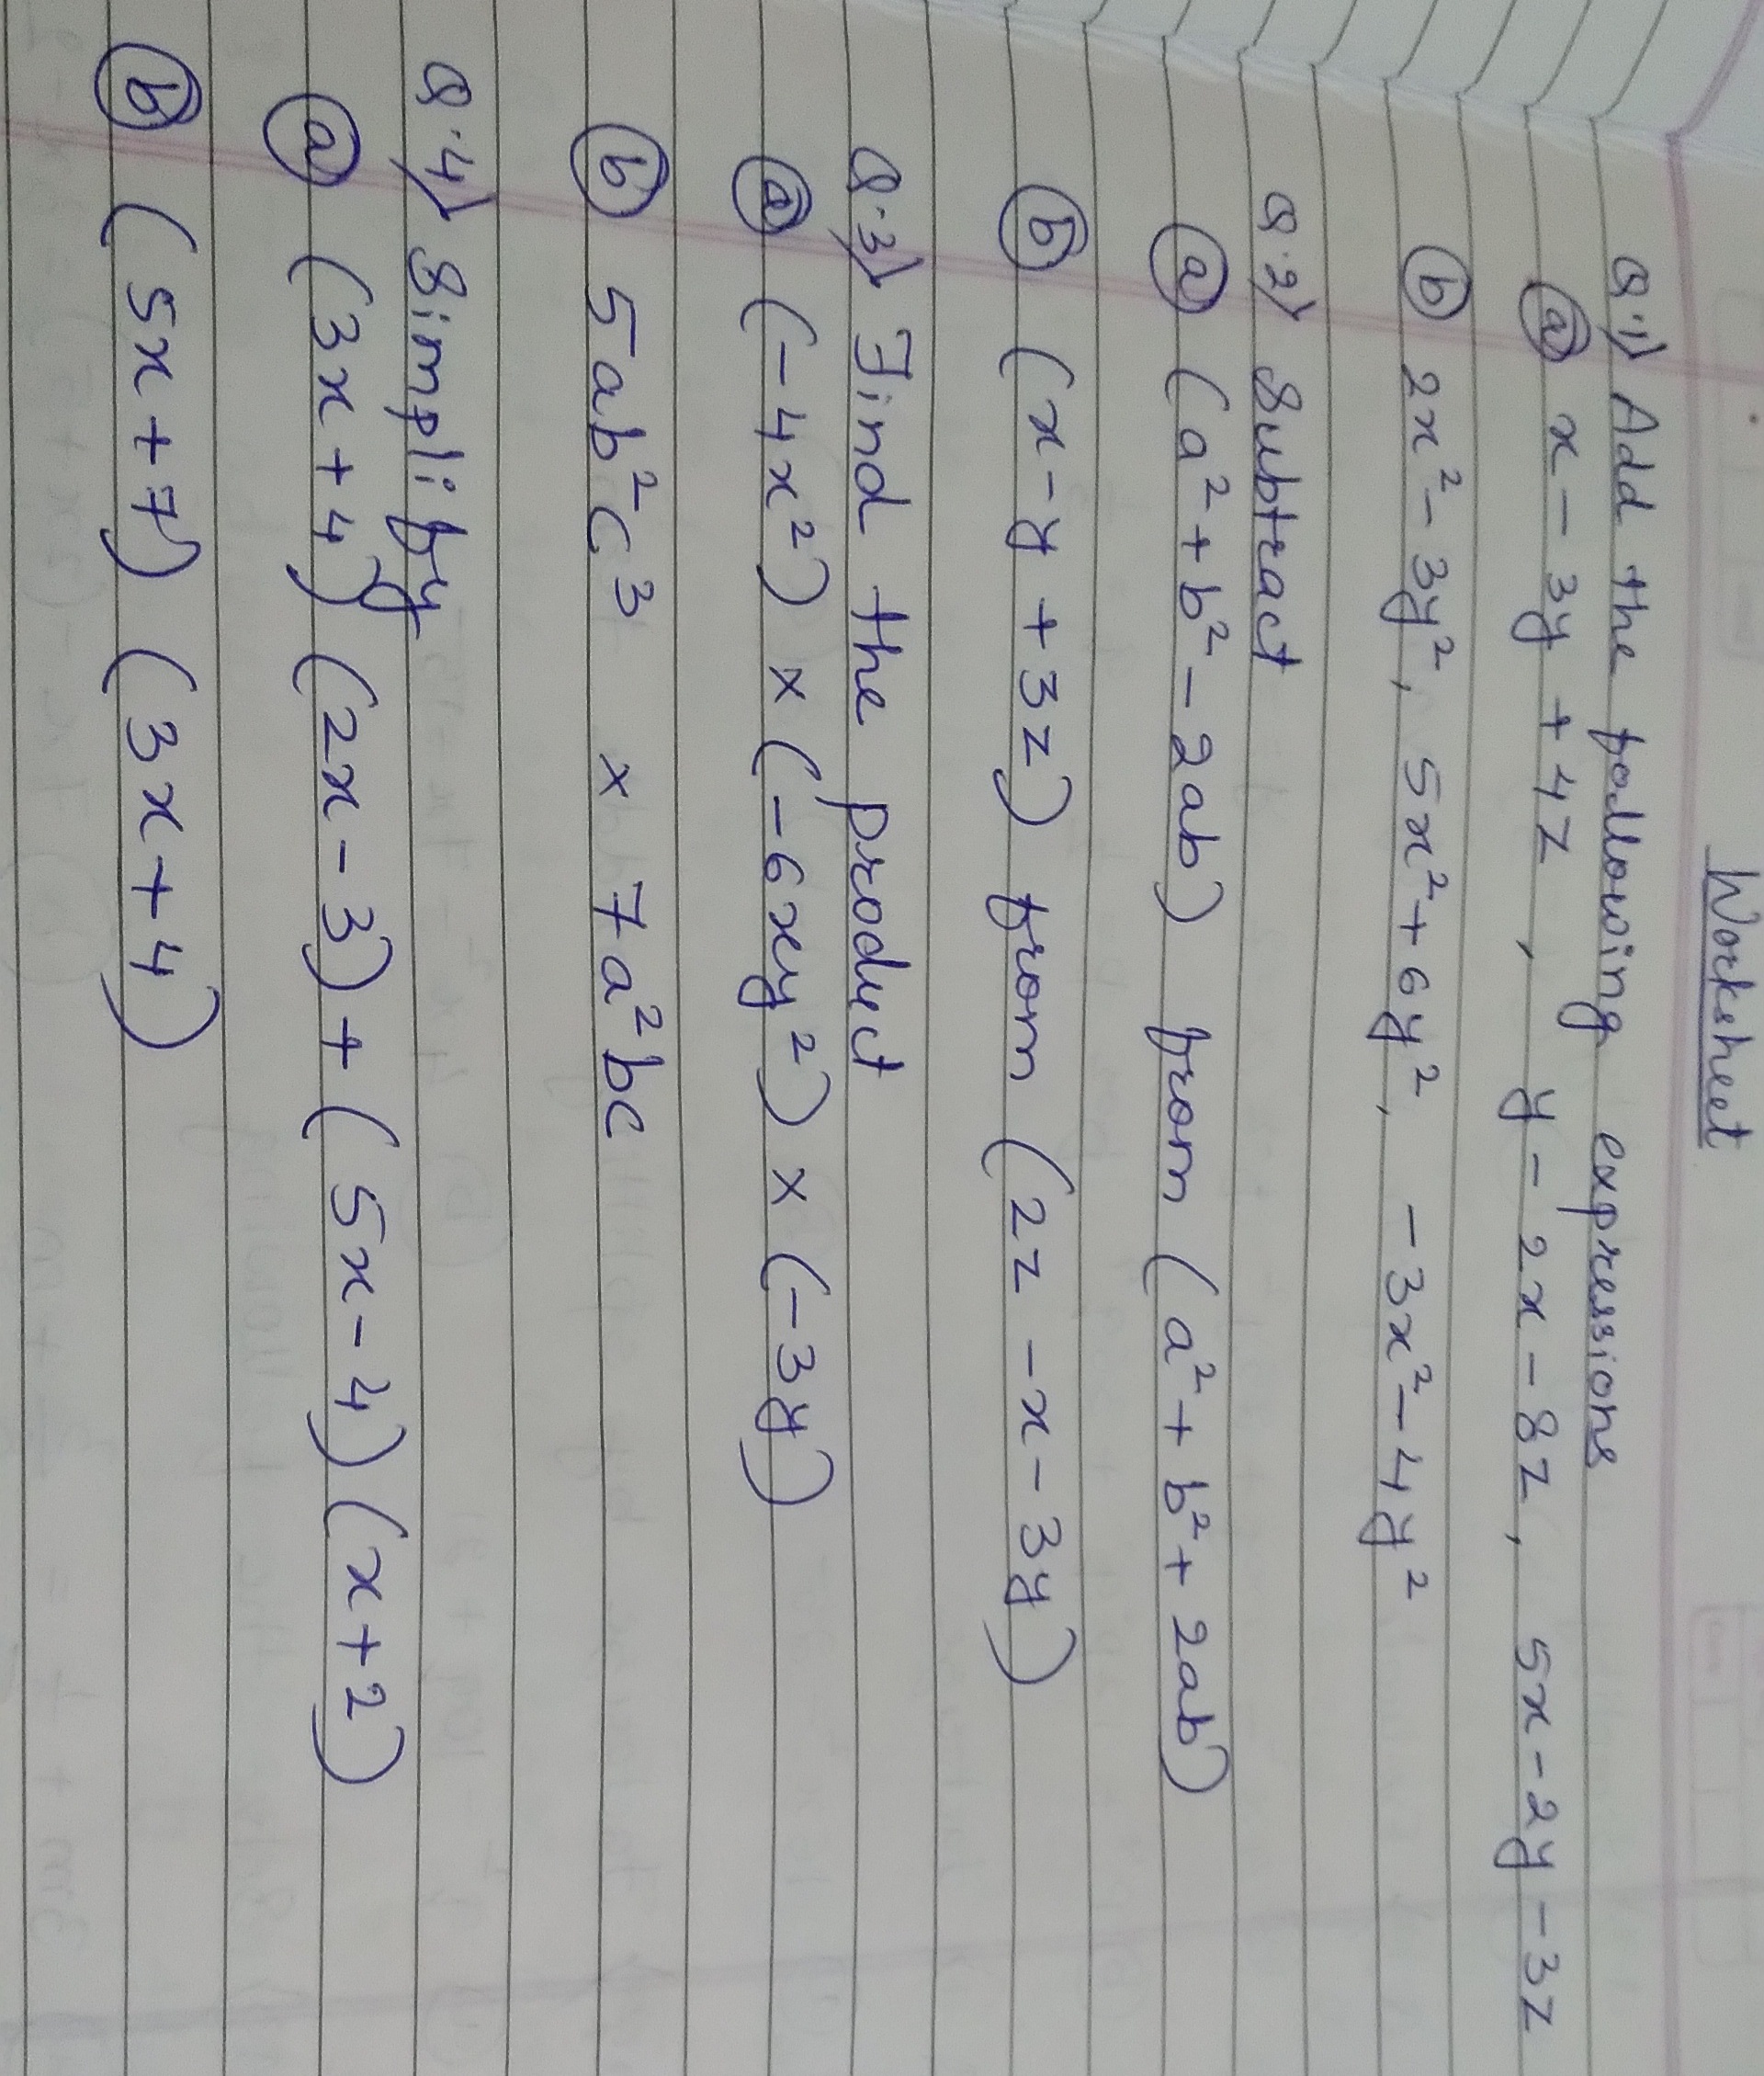 Worksheet
Q.1) Add the following expressions
(a) x - 3y + 4z , y - 2x - 8z , 5x - 2y - 3z
(b) 2x² - 3y² , 5x² + 6y² , -3x² - 4y²
Q.2) Subtract
(a) (a² + b² - 2ab) from (a² + b² + 2ab)
(b) (x - y + 3z) from (2z - x - 3y)
Q.3) Find the product
(a) (-4x²) × (-6xy²) × (-3y)
(b) 5ab²c³ × 7a²bc
Q.4) Simplify
(a) (3x + 4) (2x - 3) + (5x - 4) (x + 2)
(b) (5x + 7) (3x + 4)